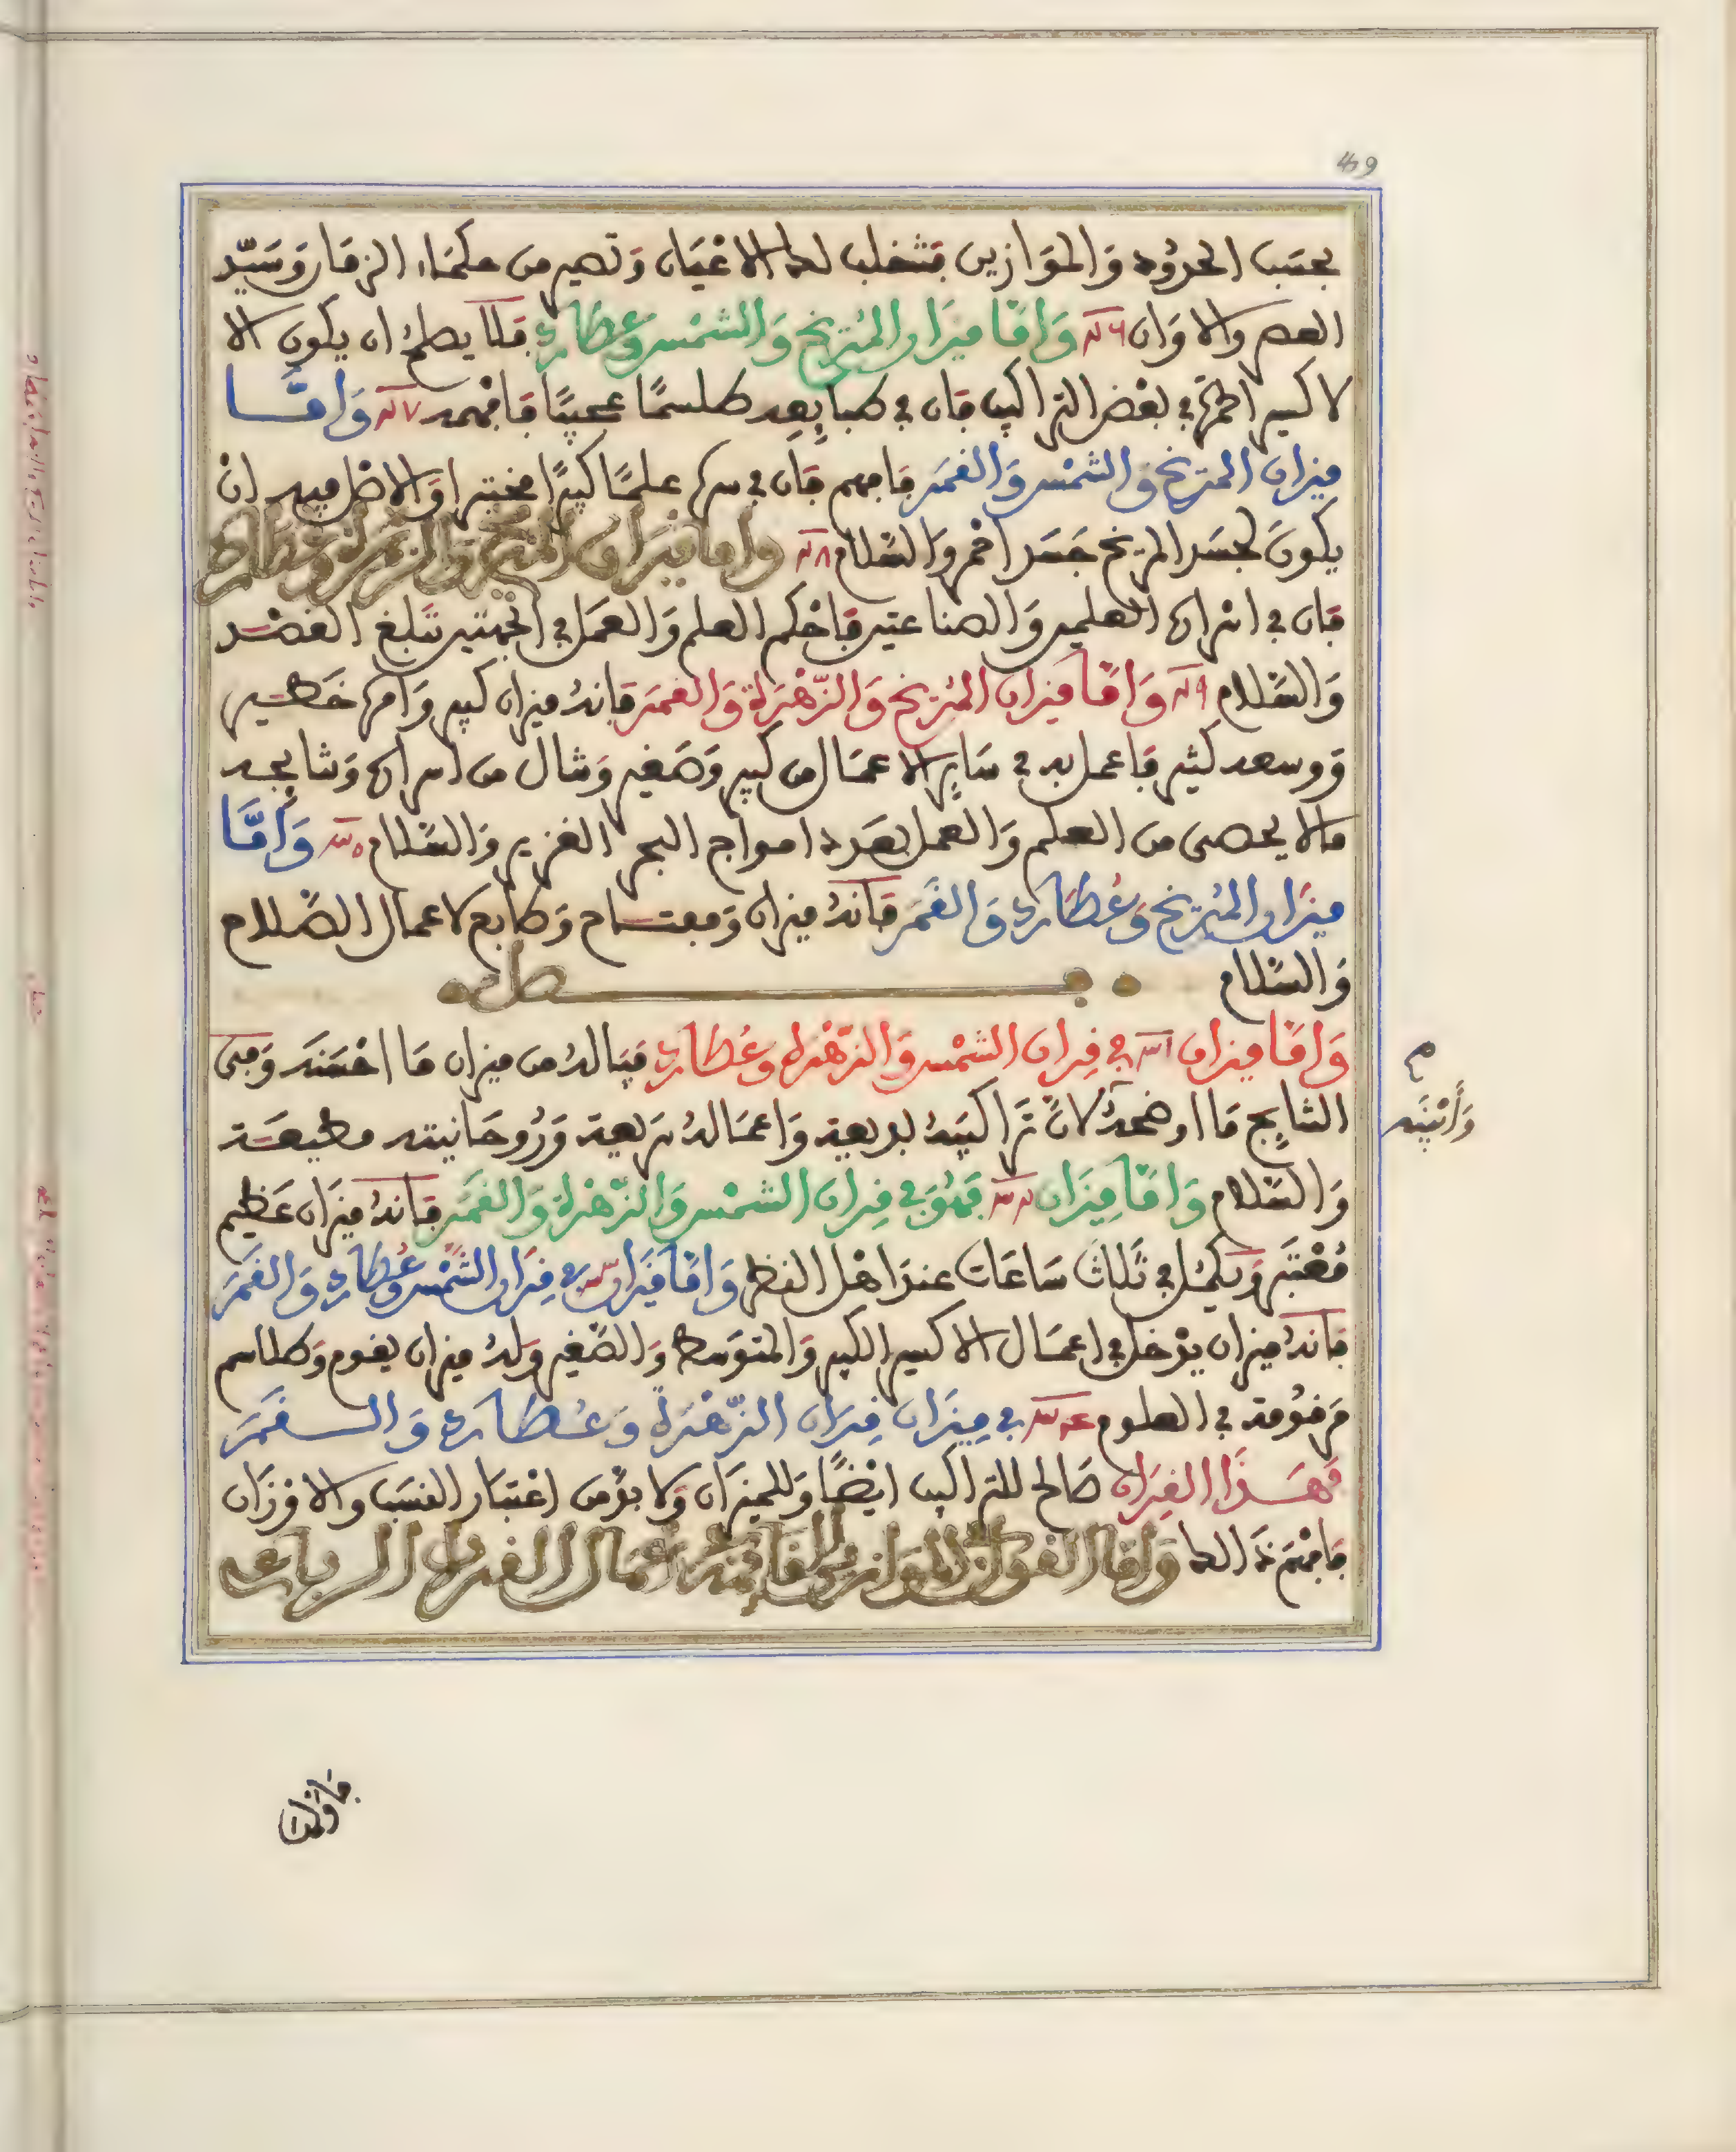 49
بحسب الحدود والموازين فتنقلب لك الاعيان وتصير من حكماء الزمان وسيد
العصر والاوان وَامَّا ميزان المريخ والشمس وعطارد فلا يصلح ان يكون الا
لاكسير الحمرة في بعض التراكيب فان في طبايعه طلسمًا عجيبًا فافهمه وَامَّا
ميزان المريخ والشمس والقمر فافهم فان في سره علمًا كبيرًا مختبرا والاصل فيه ان
يكون لجسد المريخ جسد احمر والسلام وامّا ميزان المريخ والزهرة وعطارد
فان في اسراره العلمين والصناعتين فاحكم العلم والعمل في الجهتين تبلغ القصد
والسلام وَامَّا ميزان المريخ والزّهرة والقمر فانه ميزان كبير وامره خطير
ووسعه كثير فاعمل به في ساير الاعمال من كبير وصغير وشال من اسراره ونتايجه
مالا يحصى من العلم والعمل بعدد امواج البحر الغزير والسلام وَأمَّا
ميزان المريخ وعُطارد والقمر فانه ميزان ومفتاح وطابع لاعمال الصّلاح
والسلام
فصل
وَامَّا ميزان في قران الشمس والزهرة وعُطارد فياله من ميزان ما احسنه ومن
النتايج ما اوضحه لانّ تراكيبه بديعة واعماله سريعة وروحانيته مطيعة
والسلام وَامَّا ميزان فهو في قران الشمس والزّهرة والقمر فانه ميزان عظيم
مُعْتبر ويكمل في ثلاث ساعات عند اهل النظر وامّا ميزان في قران الشمس وعُطارد والقمر
فانه ميزان يدخل في اعمال الاكسير الكبير والمتوسط والصغير وله ميزان يقوم وطلاسم
مرقومة في العلوم في ميزان قران الزّهرة وعُطارد والقمر
فهذا القران صالح للتراكيب ايضًا وللميزان ولا بد من اعتبار النسب والاوزان
فافهم ذالك وامّا القول في الموازين القايمة باعمال القران الرباعي
م
وَأبْيَنه